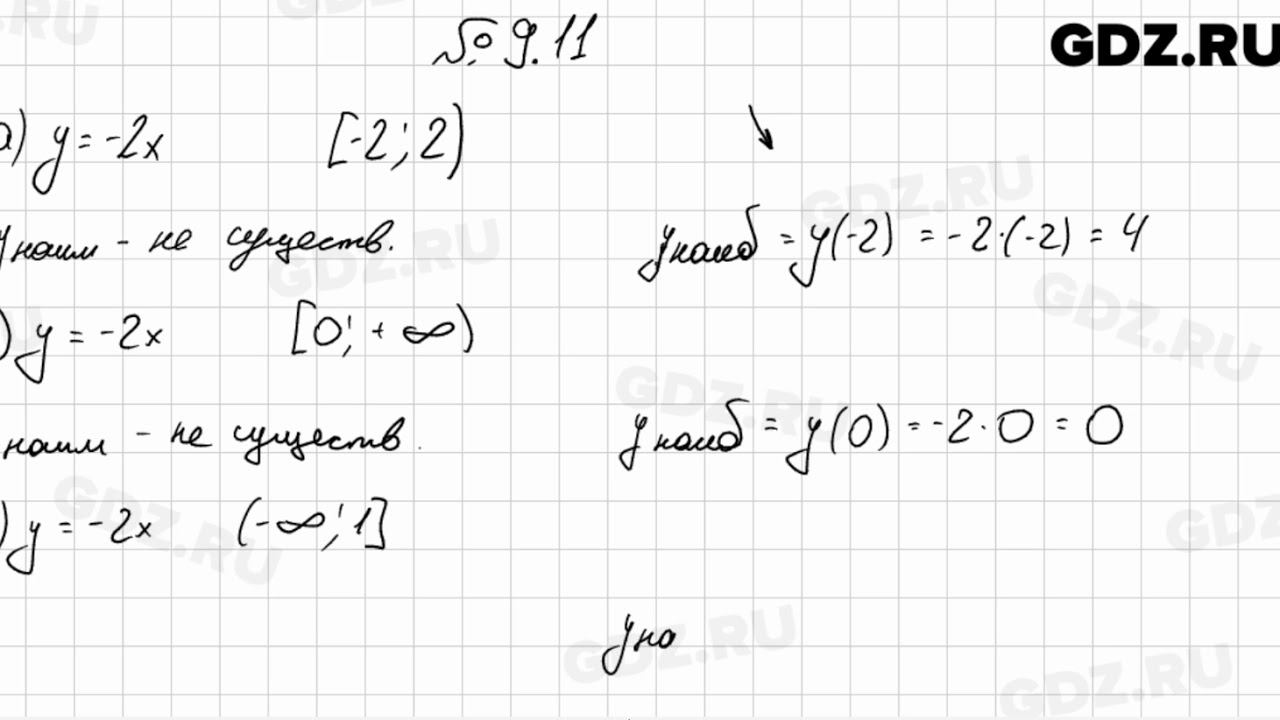 № 9.11
GDZ.RU
а) y = -2x [-2; 2)
y наим - не существ. y наиб = y(-2) = -2·(-2) = 4
) y = -2x [0; +∞)
наим - не существ. y наиб = y(0) = -2·0 = 0
) y = -2x (-∞; 1]
y на